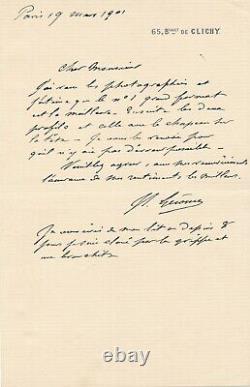 Paris 19 mars 1901
65, B^ARD DE CLICHY
Cher Monsieur
J'ai vu les photographies et
j'estime que le n° 1 grand format
est la meilleure. Ensuite les deux
profils et celle au chapeau sur
la tête. Je vous les renvoie pour
qu'il n'y ait pas d'erreur possible.
Veuillez agréer, avec mes remerciements
l'assurance de mes sentiments les meilleurs.
JL Gérome
Je vous écris de mon lit où depuis 8
jours je suis cloué par la grippe et
une bronchite.